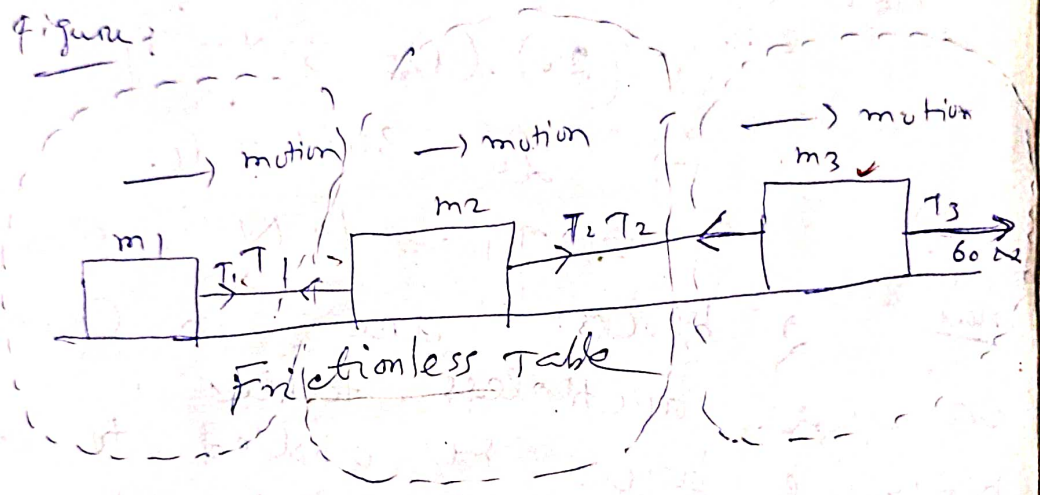 Figure:
→ motion
→ motion
→ motion
m1
m2
m3
T1 T1
T2 T2
T3
60 N
Frictionless Table